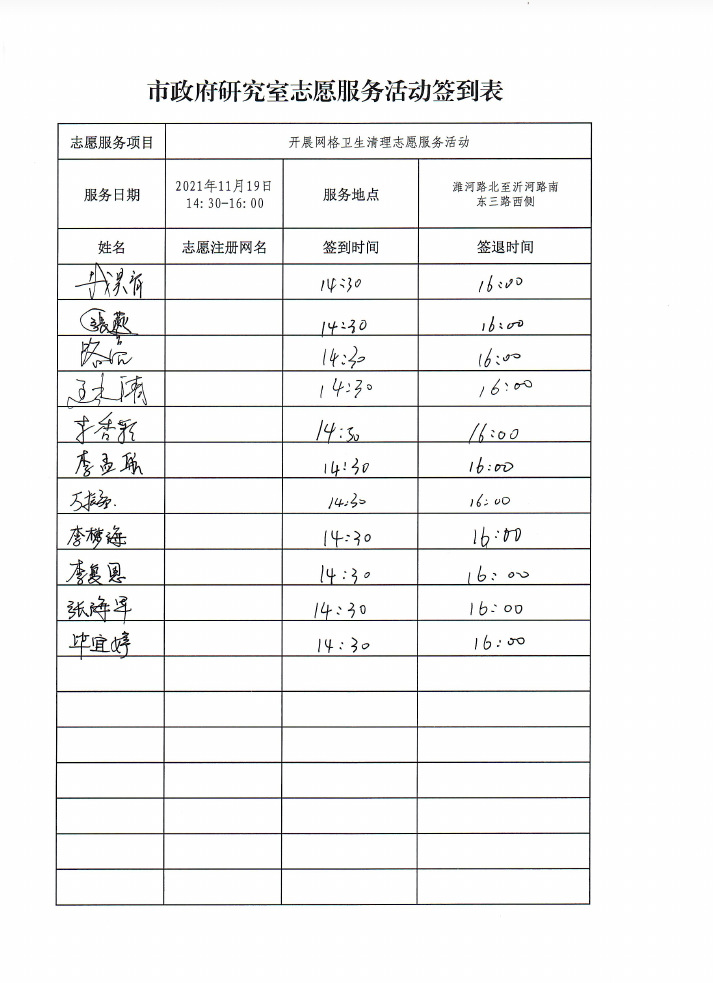 市政府研究室志愿服务活动签到表
志愿服务项目 开展网格卫生清理志愿服务活动
服务日期 2021年11月19日 服务地点 潍河路北至沂河路南
14:30-16:00 东三路西侧
姓名 志愿注册网名 签到时间 签退时间
14:30 16:00
張燕 14:30 16:00
路浩 14:30 16:00
14:30 16:00
李香颖 14:30 16:00
李孟 14:30 16:00
14:30 16:00
李梦海 14:30 16:00
李复恩 14:30 16:00
张海军 14:30 16:00
毕宜婷 14:30 16:00